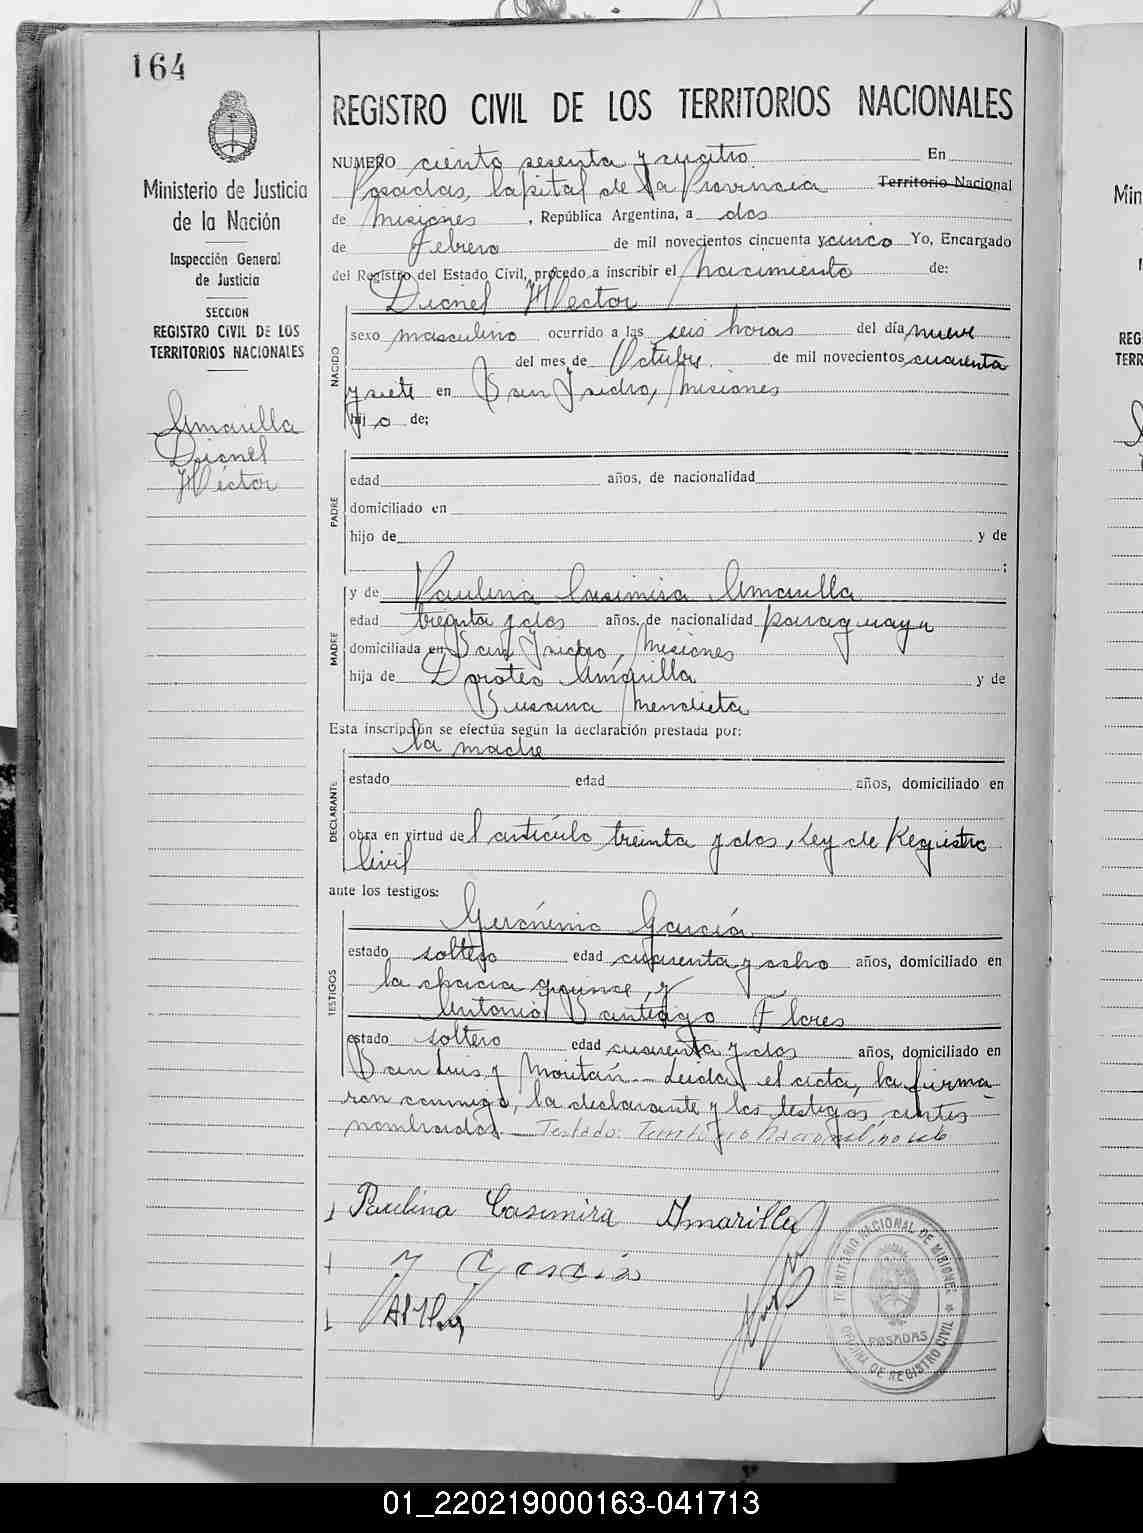 164
Ministerio de Justicia
de la Nación
Inspección General
de Justicia
SECCION
REGISTRO CIVIL DE LOS
TERRITORIOS NACIONALES
Amarilla
Dionel
Héctor
REGISTRO CIVIL DE LOS TERRITORIOS NACIONALES
NUMERO ciento sesenta y cuatro En
Posadas, Capital de la Provincia Territorio Nacional
de Misiones, República Argentina, a dos
de Febrero de mil novecientos cincuenta y cinco Yo, Encargado
del Registro del Estado Civil, procedo a inscribir el nacimiento de:
Dionel Héctor
NACIDO
sexo masculino ocurrido a las seis horas del día nueve
del mes de Octubre de mil novecientos cuarenta
y siete en San Isidro, Misiones
hijo de:
PADRE
edad años, de nacionalidad
domiciliado en
hijo de y de
;
MADRE
y de Paulina Casimira Amarilla
edad treinta y dos años, de nacionalidad paraguaya
domiciliada en San Isidro, Misiones
hija de Doroteo Amarilla y de
Susana Mendieta
Esta inscripción se efectúa según la declaración prestada por:
la madre
DECLARANTE
estado edad años, domiciliado en
obra en virtud del artículo treinta y dos, Ley de Registro
Civil
ante los testigos:
Gerónimo García
TESTIGOS
estado soltero edad cuarenta y ocho años, domiciliado en
la chacra y
Antonio Santiago Flores
estado soltero edad cuarenta y dos años, domiciliado en
San Luis y Moritán. Leída el acta, la firma-
ron conmigo, la declarante y los testigos antes
nombrados. Testado: Territorio Nacional, no vale
Paulina Casimira Amarilla
García
TERRITORIO NACIONAL DE MISIONES
POSADAS
OFICINA DE REGISTRO CIVIL
Min
REG
TERR
01_220219000163-041713